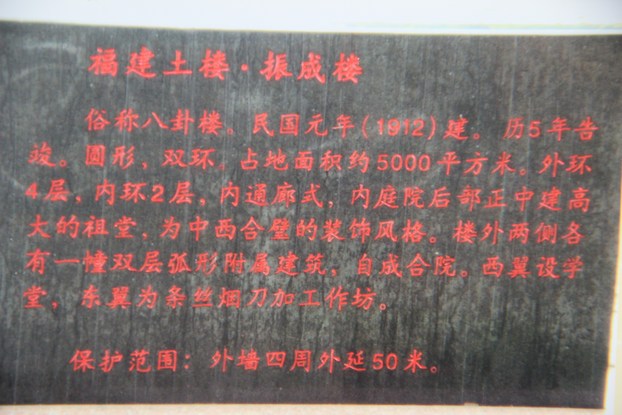 福建土楼·振成楼
俗称八卦楼。民国元年(1912)建。历5年告
竣。圆形，双环，占地面积约5000平方米。外环
4层，内环2层，内通廊式，内庭院后部正中建高
大的祖堂，为中西合璧的装饰风格。楼外两侧各
有一幢双层弧形附属建筑，自成合院。西翼设学
堂，东翼为条丝烟刀加工作坊。
保护范围：外墙四周外延50米。